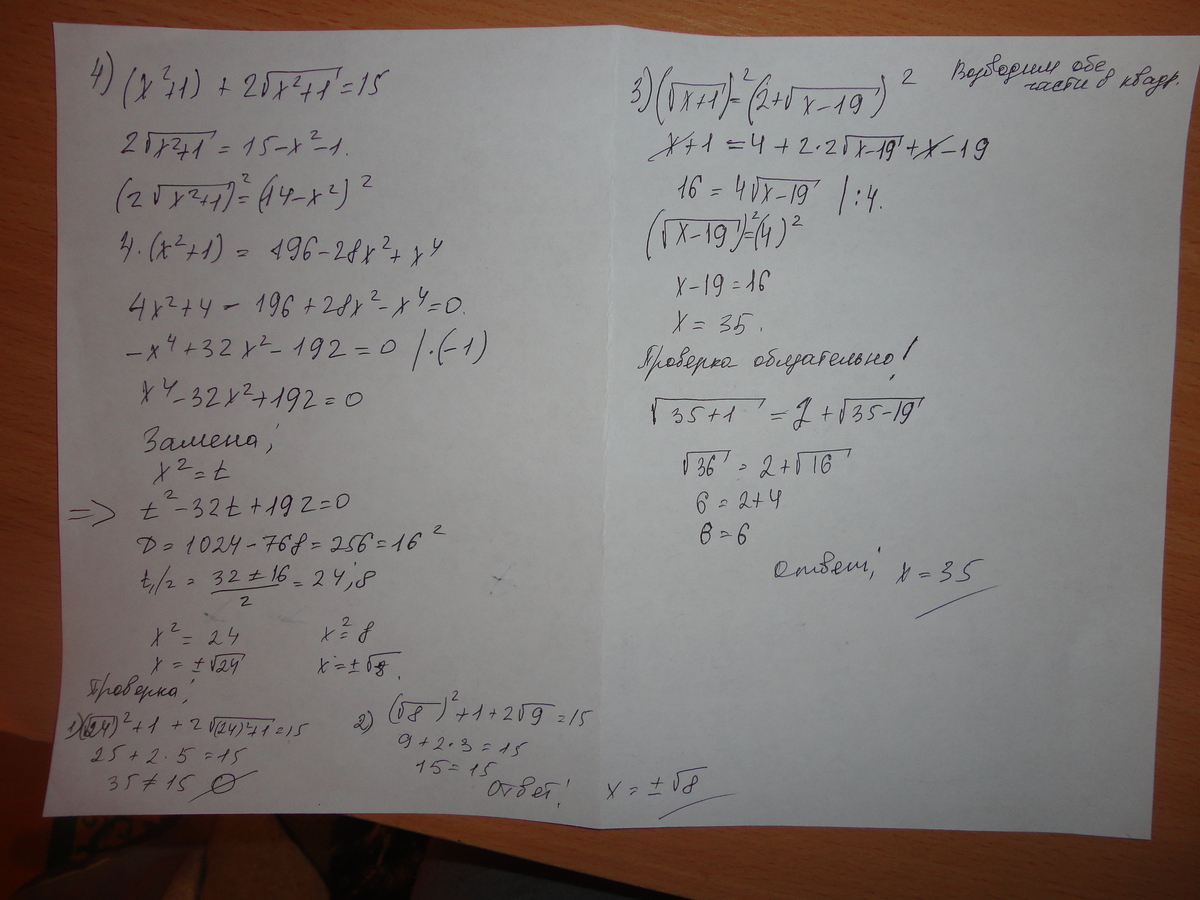 4) (x²+1) + 2√(x²+1) = 15
2√(x²+1) = 15-x²-1.
(2√(x²+1))² = (14-x²)²
4·(x²+1) = 196-28x²+x⁴
4x²+4 - 196+28x²-x⁴=0.
-x⁴+32x²-192=0 /·(-1)
x⁴-32x²+192=0
Замена:
x²=t
=> t²-32t+192=0
D=1024-768=256=16²
t₁/₂ = (32±16)/2 = 24; 8
x² = 24 x² = 8
x = ±√24 x = ±√8.
Проверка:
1) (√24)²+1 + 2√((24)²+1) = 15
25+2·5=15
35≠15 ∅
2) (√8)²+1+2√9=15
9+2·3=15
15=15
Ответ: x = ±√8
3) (√(x+1))² = (2+√(x-19))² Возводим обе
части в квадр.
x+1 = 4+2·2√(x-19)+x-19
16 = 4√(x-19) /:4.
(√(x-19))²=(4)²
x-19=16
x = 35.
Проверка обязательно!
√(35+1) = 2+√(35-19)
√36 = 2+√16
6 = 2+4
6=6
Ответ: x=35